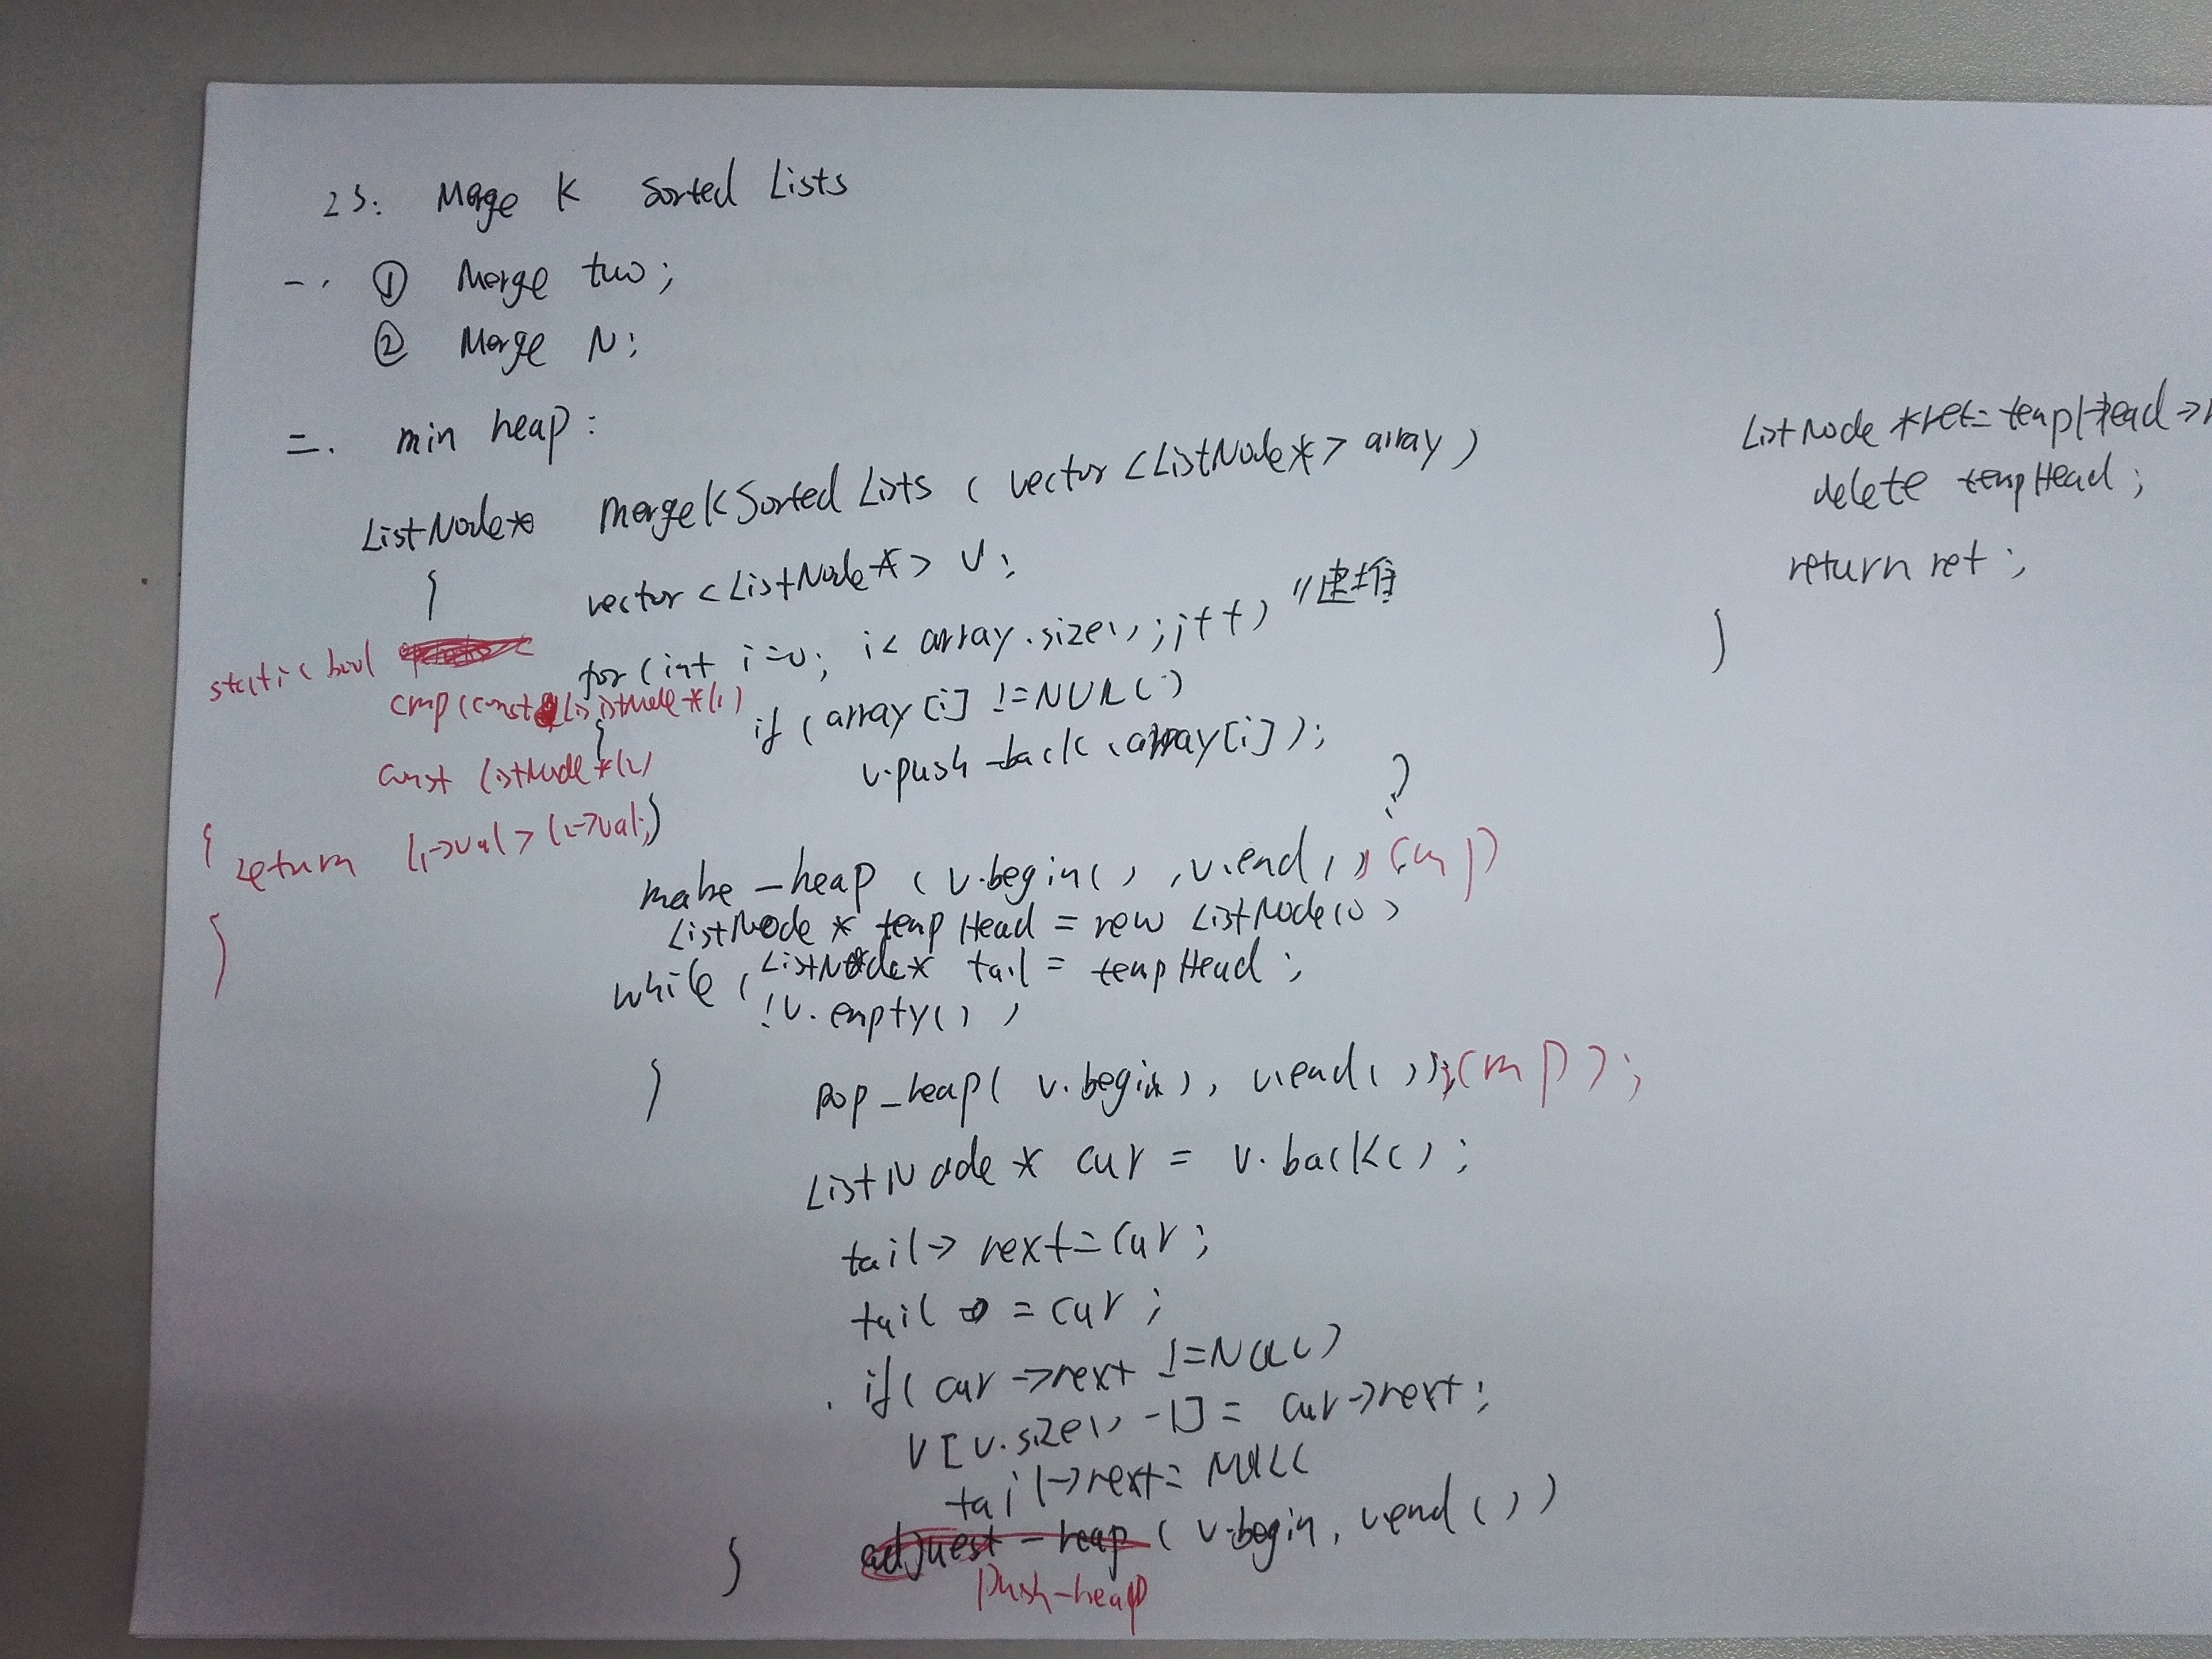 23. Merge K Sorted Lists
一. ① Merge two;
② Merge N;
二. min heap:
ListNode* mergeKSortedLists (vector<ListNode*> array)
{ vector<ListNode*> v;
for(int i=0; i< array.size(); i++) //建堆
if (array[i] !=NULL)
v.push_back(array[i]);
static bool
cmp(const ListNode*l1)
const listNode*l2
)
{ return l1->val > l2->val;
}
?
make_heap (v.begin(), v.end(), cmp)
ListNode* tempHead = new ListNode(0)
ListNode* tail = tempHead;
while (
!v.empty())
{ pop_heap( v.begin), v.end()), cmp);
ListNode* cur = v.back();
tail->next=cur;
tail = cur;
if( cur->next !=NULL)
v[v.size() -1] = cur->next;
tail->next= NULL
adjuest-heap (v.begin, v.end())
push-heap
}
ListNode *ret= tempHead->
delete tempHead;
return ret;
}